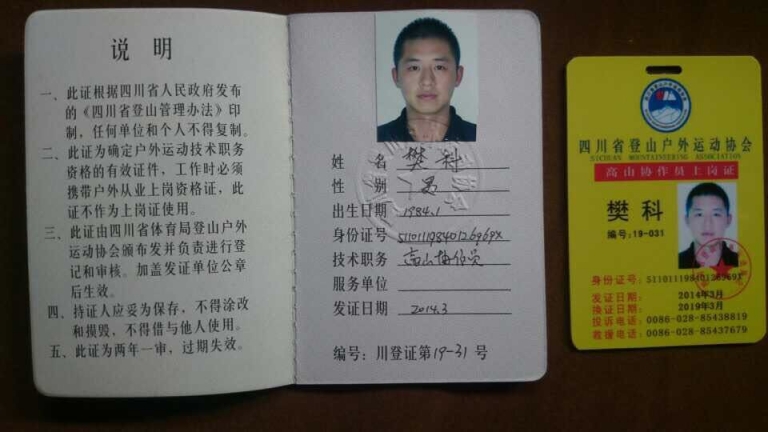 说 明
一、此证根据四川省人民政府发布
的《四川省登山管理办法》印
制，任何单位和个人不得复制。
二、此证为确定户外运动技术职务
资格的有效证件，工作时必须
携带户外从业上岗资格证，此
证不作为上岗证使用。
三、此证由四川省体育局登山户外
运动协会颁布发并负责进行登
记和审核。加盖发证单位公章
后生效。
四、持证人应妥为保存，不得涂改
和损毁，不得借与他人使用。
五、此证为两年一审，过期失效。
姓 名 樊科
性 别 男
出生日期 1984.1
身份证号 5101119840126969X
技术职务 高山协作员
服务单位
发证日期 2014.3
编号：川登证第19-31号
四川省登山户外运动协会
SICHUAN MOUNTAINEERING ASSOCIATION
高山协作员上岗证
樊 科
编号:19-031
身份证号:
发证日期: 2014年3月
换证日期: 2019年3月
投诉电话: 0086-028-85438819
救援电话: 0086-028-85437679